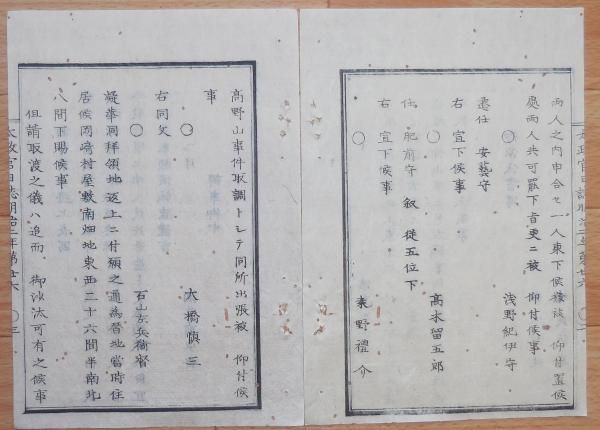 両人之内申合セ一人東下候様被 仰付置候
処両人共可罷下旨更ニ被 仰付候事
浅野紀伊守
遷任 安藝守
右 宣下候事
○ 高本留五郎
任 肥前守 叙 従五位下
右 宣下候事
○ 野禮介
高野山事件取調トシテ同所出張被 仰付候
事
○ 大橋慎三
右同文
○ 石山左兵衛督
拝領地返上ニ付願之通為替地當時住
居候岡崎村屋敷南畑地東西二十六間半南北
八間下賜候事
但請取渡之儀ハ追而 御沙汰可有之候事
太政官日誌明治二年第廿六 ○三